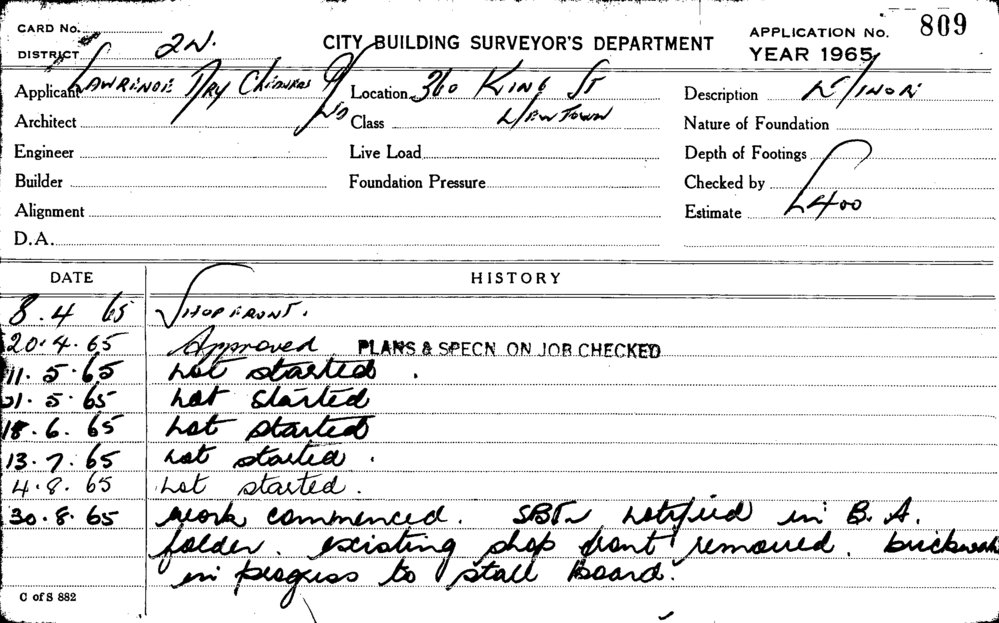 CARD No.
DISTRICT 2N.
CITY BUILDING SURVEYOR'S DEPARTMENT
APPLICATION No. 809
YEAR 1965
Applicant LAWRENCE DRY CLEANERS P/L
Location 360 KING ST
Description MINOR
Architect
Class NEWTOWN
Nature of Foundation
Engineer
Live Load
Depth of Footings
Builder
Foundation Pressure
Checked by
Alignment
Estimate £400
D.A.
DATE HISTORY
8.4 65 SHOPFRONT.
20.4.65 Approved PLANS & SPECN ON JOB CHECKED
11.5.65 Not started.
21.5.65 Not started
18.6.65 Not started
13.7.65 Not started.
4.8.65 Not started.
30.8.65 Work commenced. notified in B.A.
folder. existing shop front removed. brickwork
in progress to stall board.
C of S 882